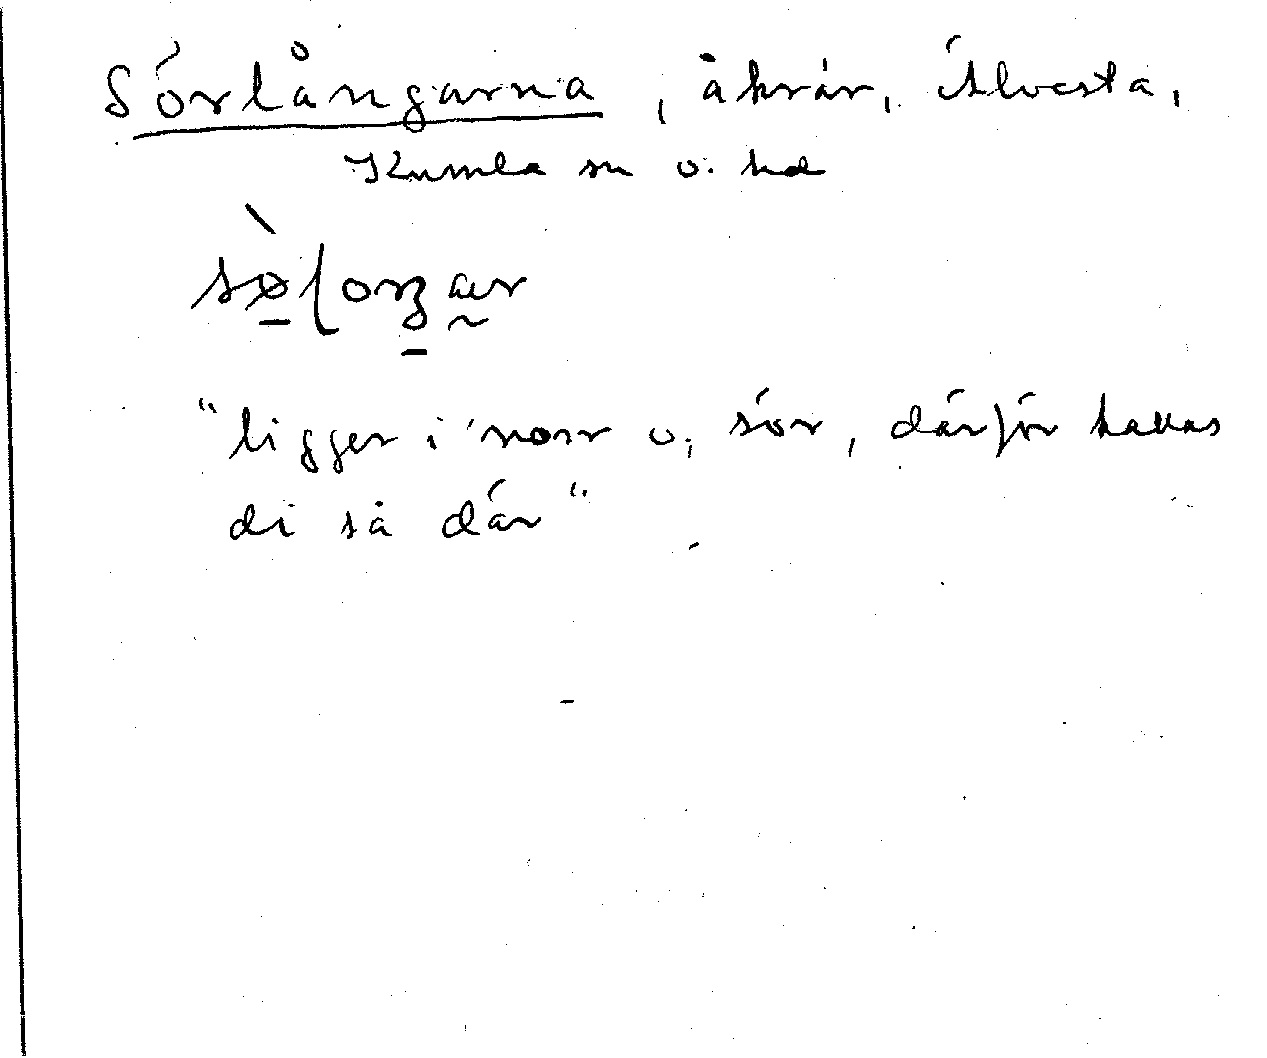 Sörlångarna, åkrar, Älvesta,
Kumla sn o. hd
"ligger i norr o, sör, därför kallas
di så där"